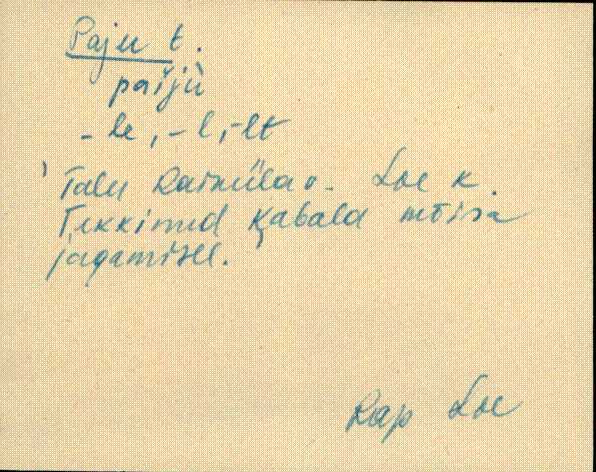 Paju t.
paĭjù
-le, -l, -lt
Talu Raikülas. Loe k.
Tekkinud Kabala mõisa
jagamisel.
Rap Loe